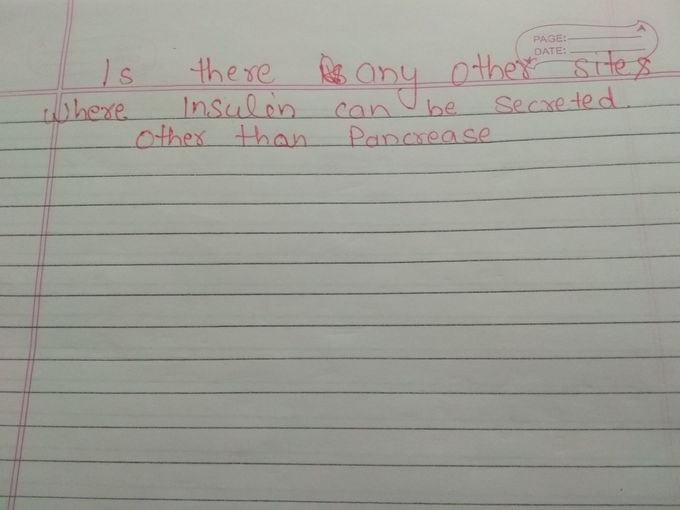 PAGE:
DATE:
Is there any other sites
Where Insulin can be Secreted.
Other than Pancrease